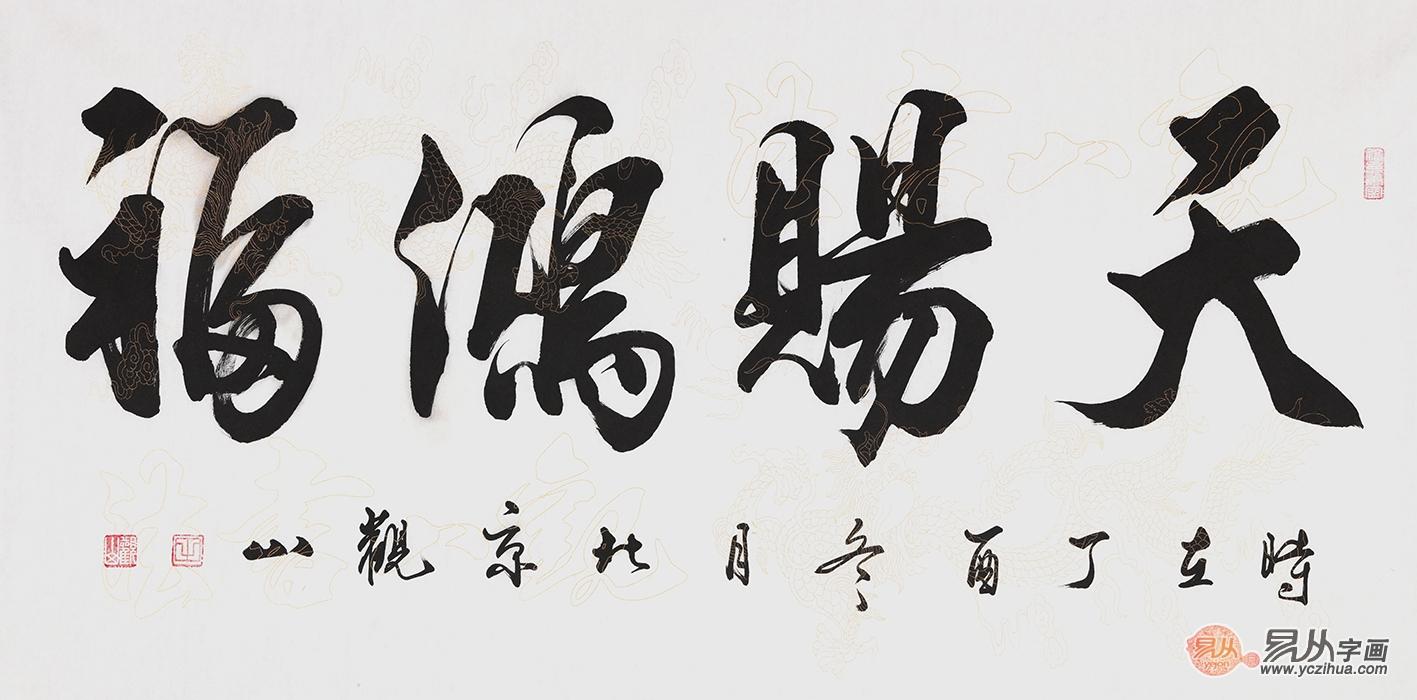 天賜鴻福
時在丁酉冬月北京觀山
易从
易从字画
www.yczihua.com